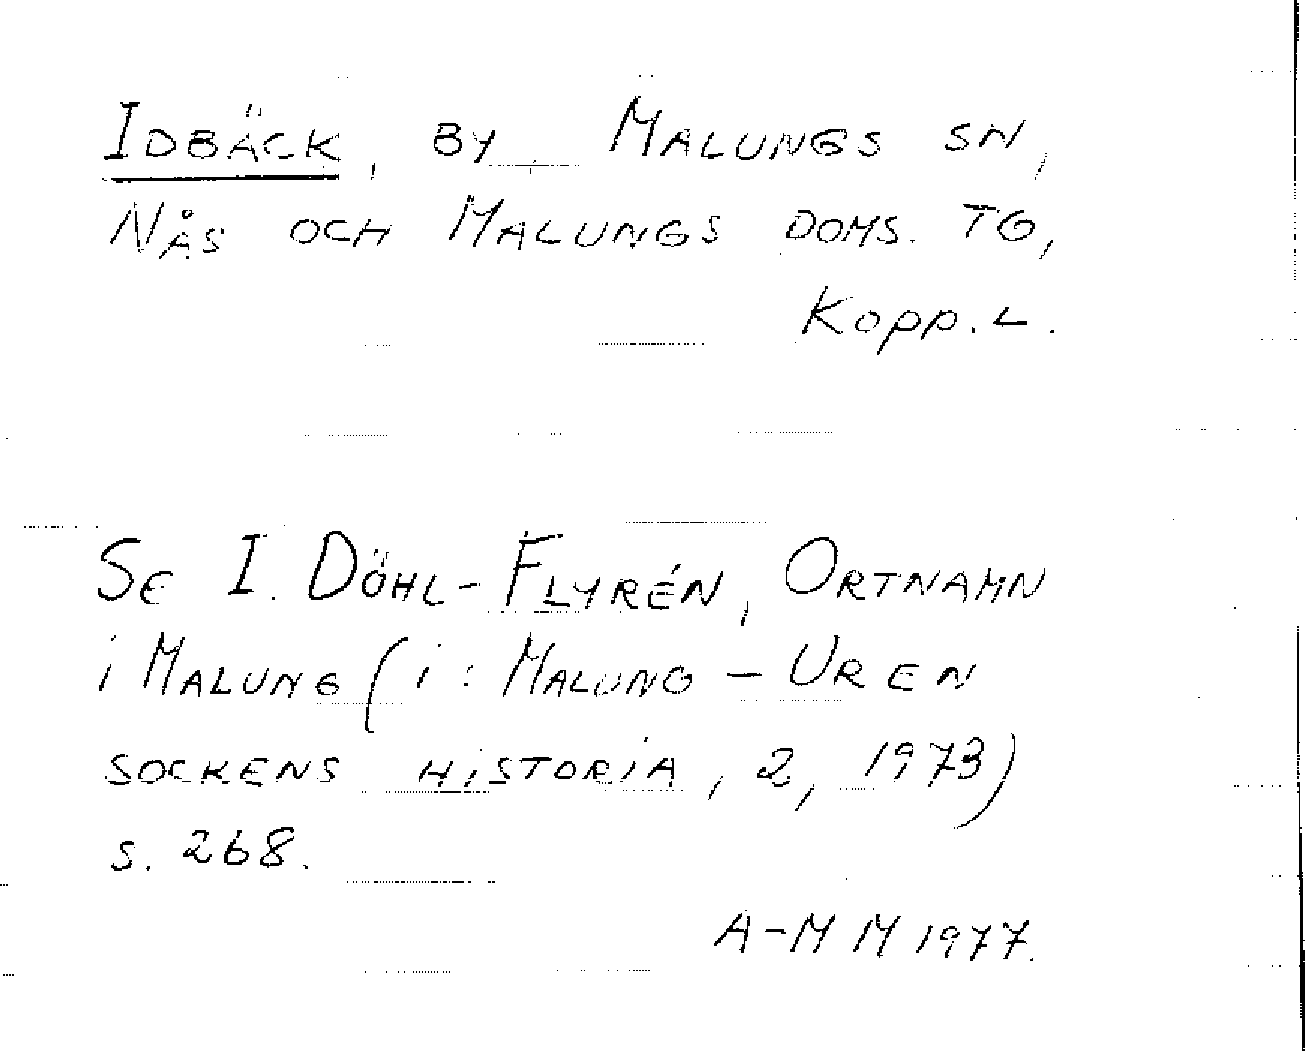 IDBÄCK, BY MALUNGS SN,
NÅS OCH MALUNGS DOMS. TG,
KOPP. L.
SE I. DÖHL-FLYRÉN, ORTNAMN
i MALUNG (i: MALUNG – UR EN
SOCKENS HiSTORiA, 2, 1973)
S. 268.
A-M M 1977.